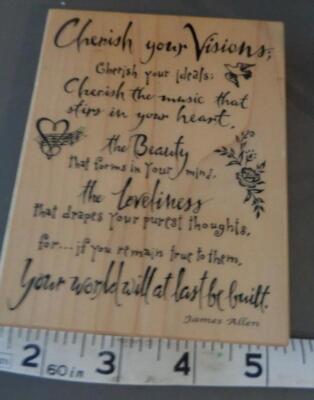 Cherish your Visions;
Cherish your ideals;
Cherish the music that
stirs in your heart,
the Beauty
that forms in your mind,
the loveliness
that drapes your purest thoughts,
for...if you remain true to them,
Your world will at last be built.
James Allen
2 3 4 5
60 in